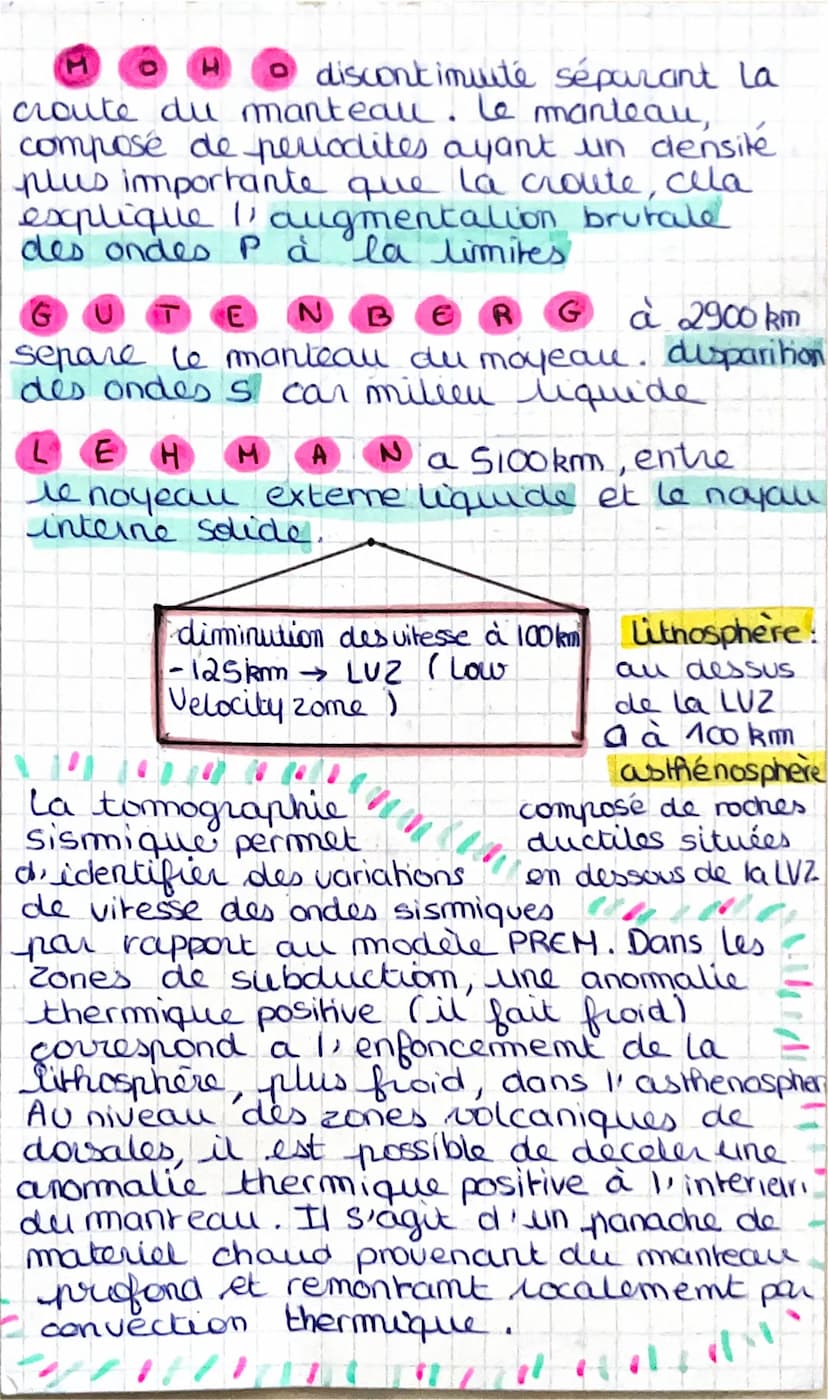 MOHO discontinuité séparant la
croute du manteau. Le manteau,
composé de periodites ayant un densité
plus importante que la croute, cela
explique l'augmentation brutale
des ondes P à la limites
GUTENBERG à 2900 km
separe le manteau du moyeau. disparition
des ondes S car milieu liquide
LEHMAN a 5100km, entre
le noyeau externe liquide et le noyau
interne solide.
diminution des vitesse à 100km
-125km → LVZ (Low
Velocity zone)
Lithosphère :
au dessus
de la LVZ
0 à 100 km
asthénosphère
composé de roches
ductiles situées
en dessous de la LVZ
La tomographie
sismique permet
d'identifier des variations
de vitesse des ondes sismiques
par rapport au modèle PREM. Dans les
zones de subduction, une anomalie
thermique positive (il fait froid)
correspond a l'enfoncement de la
lithosphère, plus froid, dans l'asthenospher
Au niveau des zones volcaniques de
dorsales, il est possible de deceler une
anomalie thermique positive à l'interieur
du manteau. Il s'agit d'un panache de
materiel chaud provenant du manteau
profond et remontant localement par
convection thermique.